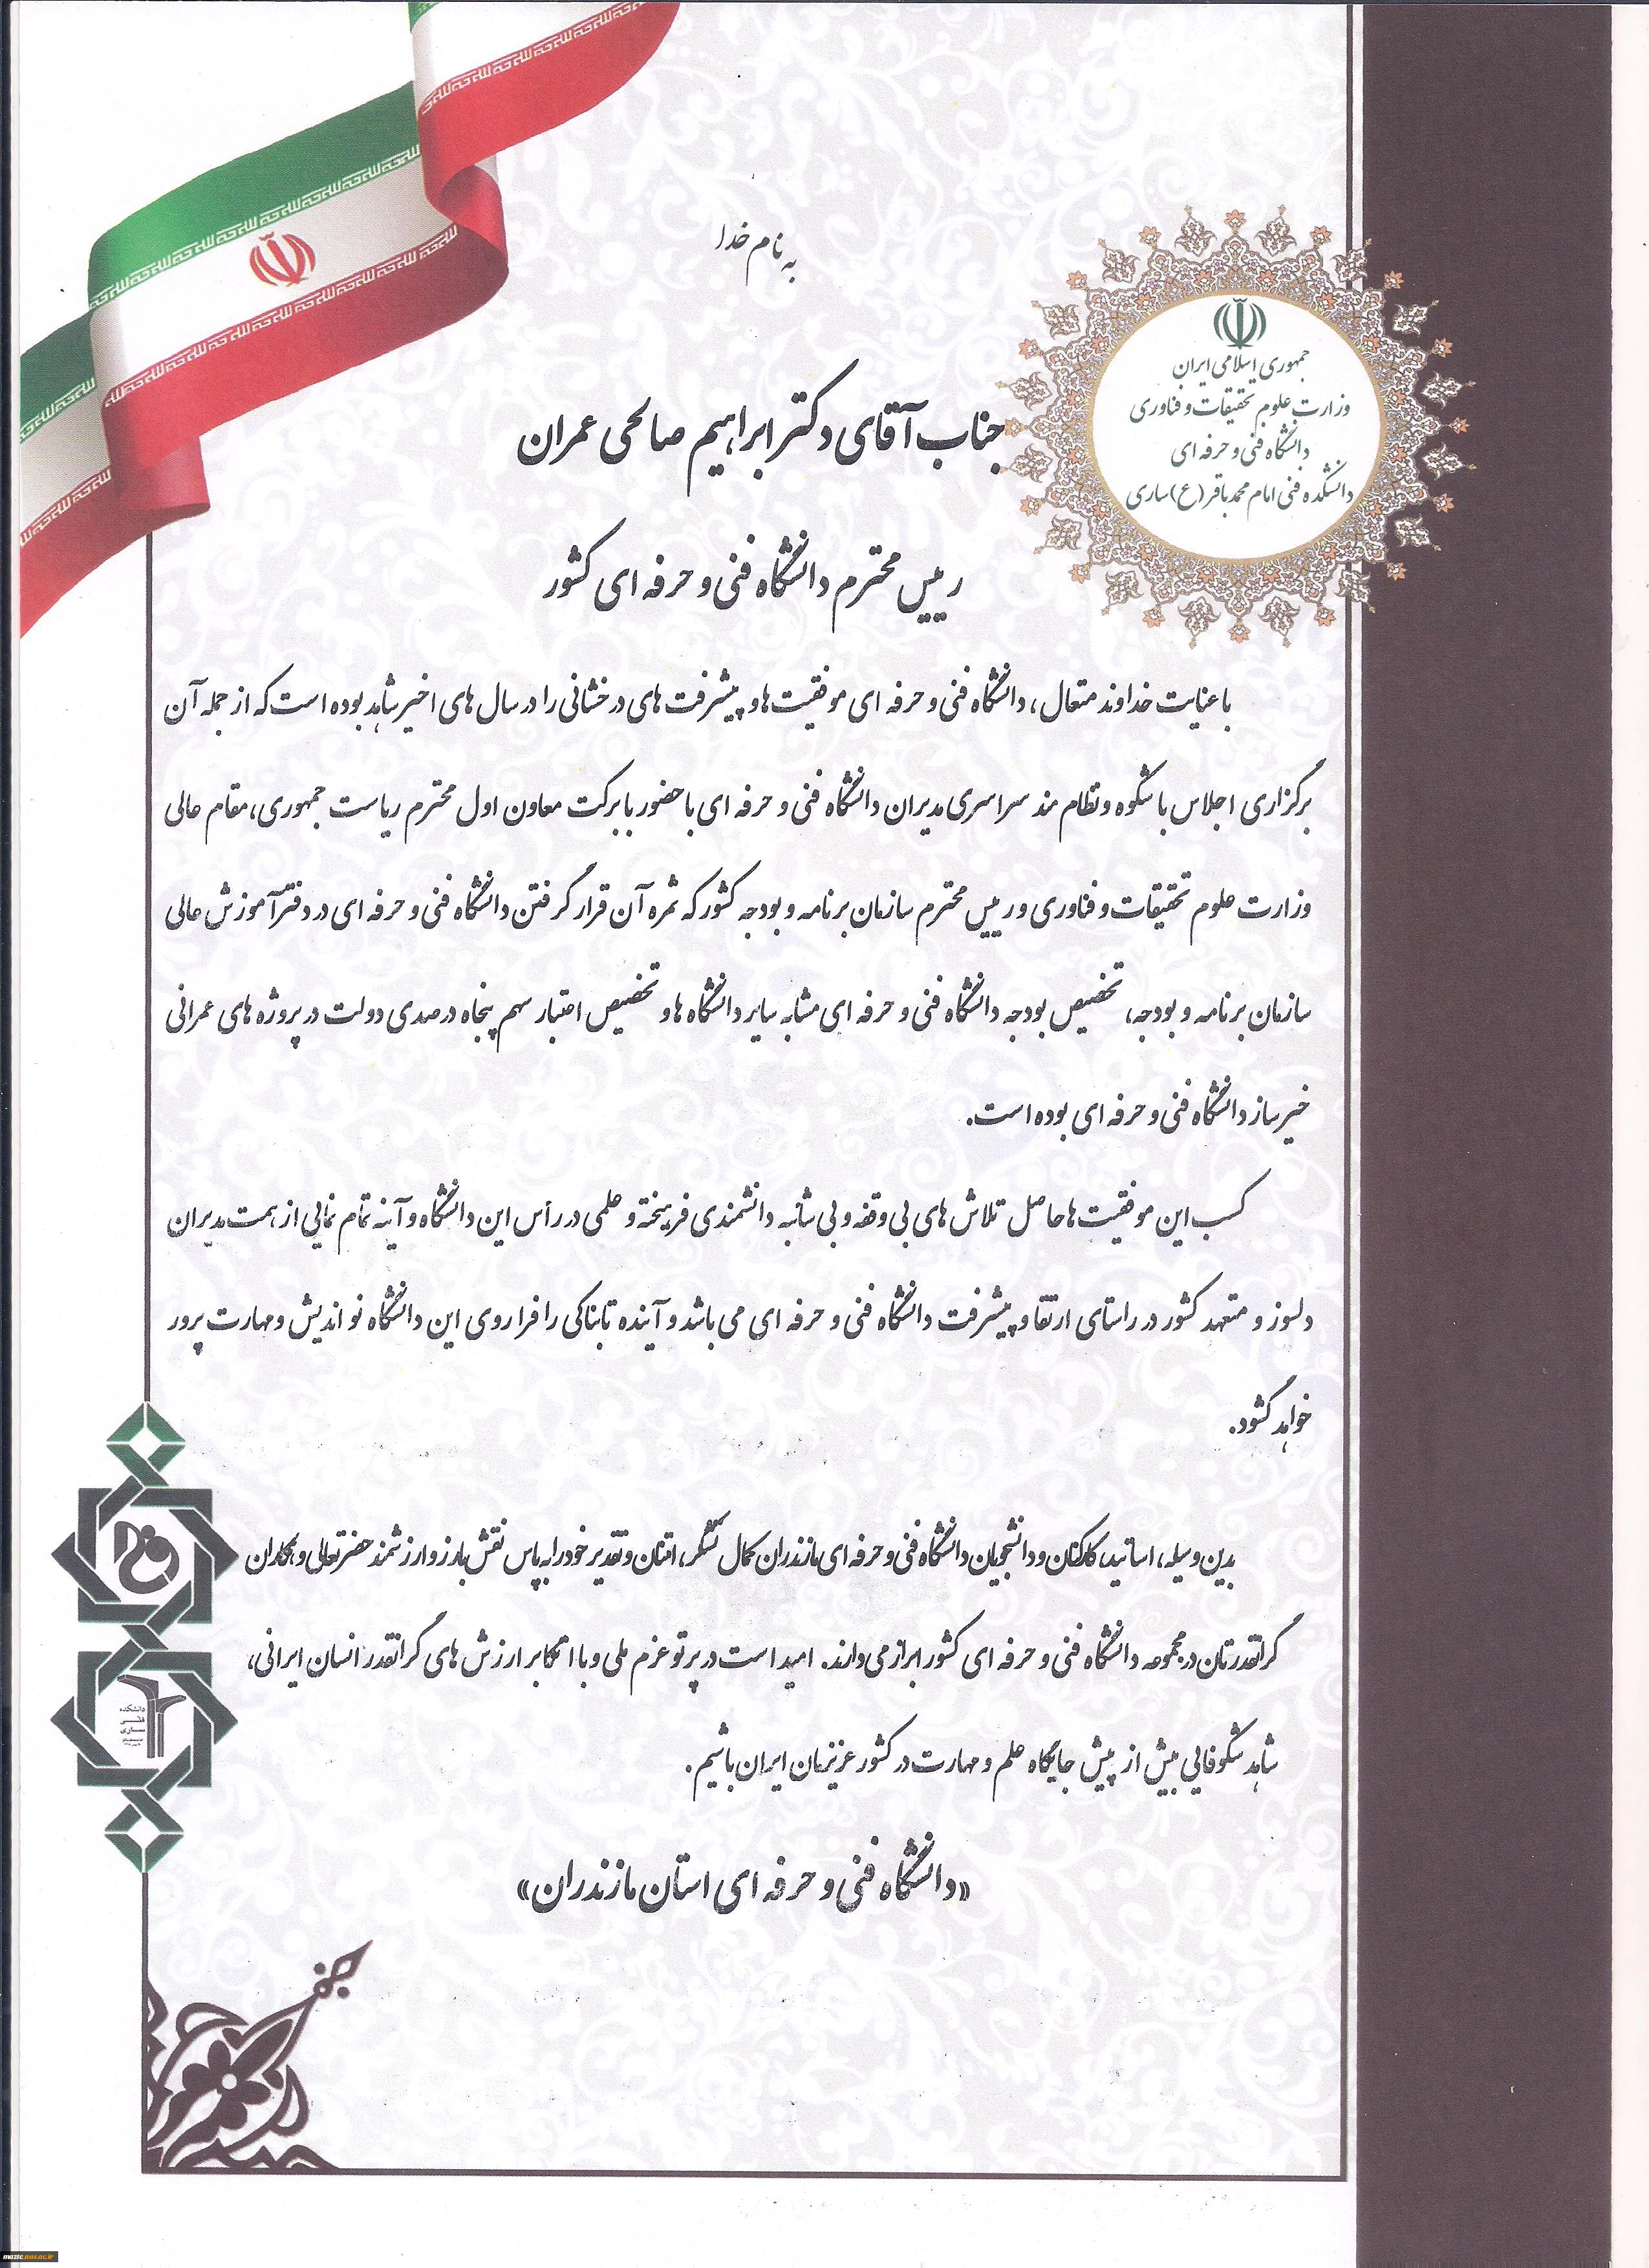 به نام خدا
جمهوری اسلامی ایران
وزارت علوم تحقیقات و فناوری
دانشگاه فنی و حرفه ای
دانشکده فنی امام محمد باقر (ع) ساری
جناب آقای دکتر ابراهیم صالحی عمران
رییس محترم دانشگاه فنی و حرفه ای کشور
با عنایت خداوند متعال، دانشگاه فنی و حرفه ای موفقیت ها و پیشرفت های درخشانی را در سال های اخیر شاهد بوده است که از جمله آن
برگزاری اجلاس با شکوه و نظام مند سراسری مدیران دانشگاه فنی و حرفه ای با حضور با برکت معاون اول محترم ریاست جمهوری، مقام عالی
وزارت علوم تحقیقات و فناوری و رییس محترم سازمان برنامه و بودجه کشور که ثمره آن قرار گرفتن دانشگاه فنی و حرفه ای در دفتر آموزش عالی
سازمان برنامه و بودجه، تخصیص بودجه دانشگاه فنی و حرفه ای مشابه سایر دانشگاه ها و تخصیص اعتبار سهم پنجاه درصدی دولت در پروژه های عمرانی
خیرساز دانشگاه فنی و حرفه ای بوده است.
کسب این موفقیت ها حاصل تلاش های بی وقفه و بی شائبه دانشمندی فرهیخته و علمی در رأس این دانشگاه و آینه تمام نمایی از همت مدیران
دلسوز و متعهد کشور در راستای ارتقا و پیشرفت دانشگاه فنی و حرفه ای می باشد و آینده تابناکی را فرا روی این دانشگاه نو اندیش و مهارت پرور
خواهد گشود.
بدین وسیله، اساتید، کارکنان و دانشجویان دانشگاه فنی و حرفه ای مازندران کمال تشکر، امتنان و تقدیر خود را به پاس نقش بارز و ارزشمند حضرتعالی و همکاران
گرانقدرتان در مجموعه دانشگاه فنی و حرفه ای کشور ابراز می دارند. امید است در پرتو عزم ملی و با اتکا بر ارزش های گرانقدر انسان ایرانی،
شاهد شکوفایی بیش از پیش جایگاه علم و مهارت در کشور عزیزمان ایران باشیم.
«دانشگاه فنی و حرفه ای استان مازندران»
دانشکده
فنی
ساری